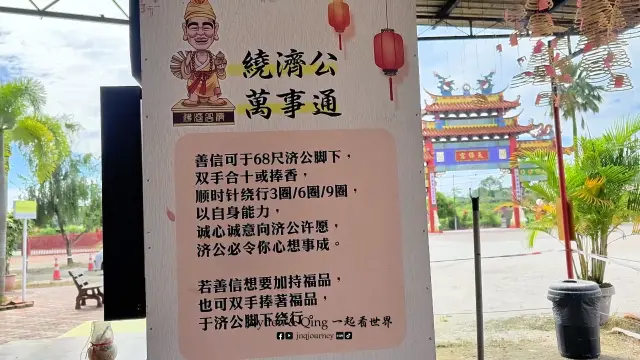 繞濟公
萬事通
善信可于68尺济公脚下，
双手合十或捧香，
顺时针绕行3圈/6圈/9圈，
以自身能力，
诚心诚意向济公许愿，
济公必令你心想事成。
若善信想要加持福品，
也可双手捧著福品，
于济公脚下绕行。
Qing 一起看世界
jnqjourney